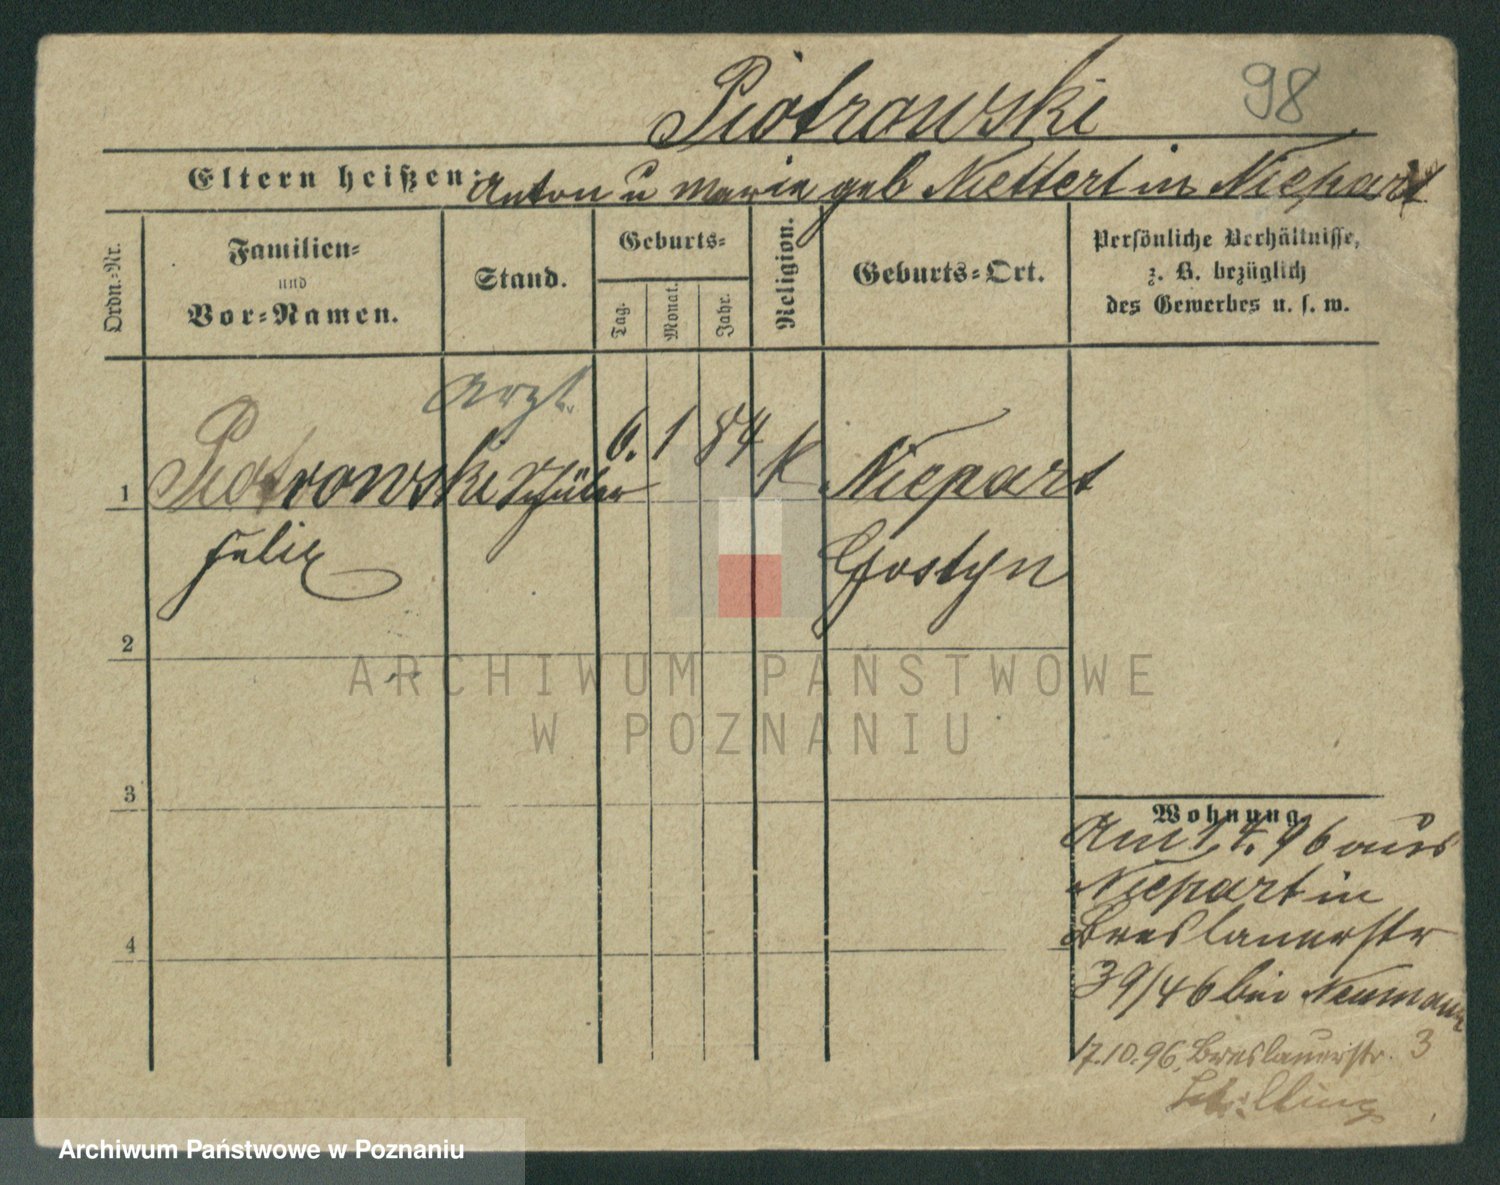 98
Piotrowski
Eltern heißen: Anton u Maria geb Niettert in Niepart
Ordn.=Nr.
Familien=
und
Vor=Namen.
Stand.
Geburts=
Tag.
Monat.
Jahr.
Religion.
Geburts=Ort.
Persönliche Verhältnisse,
z. B. bezüglich
des Gewerbes u. s. w.
Arzt.
1 Piotrowski Schüler 6. 1 84 K Niepart
Felix Gostyn
2
3
4
Wohnung
Am 1.4.96 aus
Niepart in
Breslauerstr
39/46 bei Neumann
17.10.96, Breslauerstr. 3
ARCHIWUM PAŃSTWOWE
W POZNANIU
Archiwum Państwowe w Poznaniu